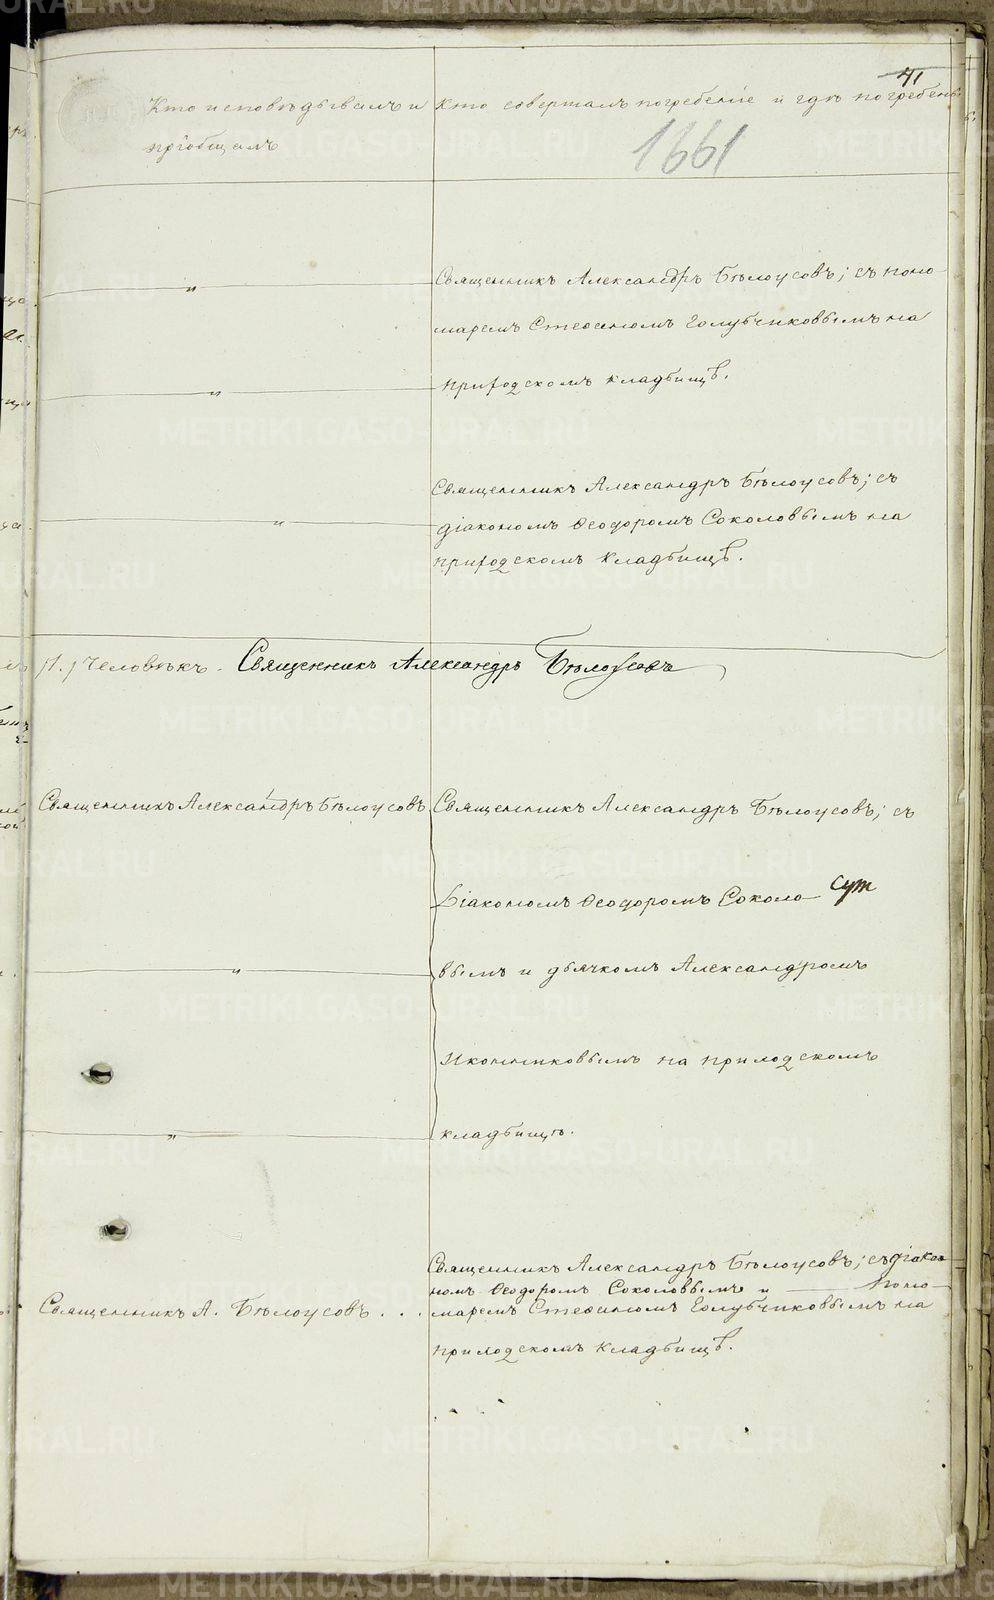 41
Кто исповѣдывалъ и
пріобщалъ
Кто совершалъ погребеніе и гдѣ погребены
1661
„ Священникъ Александръ Бѣлоусовъ; съ поно-
маремъ Стефаномъ Голубчиковымъ на
„ приходскомъ кладбищѣ.
Священникъ Александръ Бѣлоусовъ; съ
„ діакономъ Ѳеодоромъ Соколовымъ на
приходскомъ кладбищѣ.
человѣкъ. Священникъ Александръ Бѣлоусовъ
Священникъ Александръ Бѣлоусовъ Священникъ Александръ Бѣлоусовъ; съ
Діакономъ Ѳеодоромъ Соколо-
„ вымъ и дьячкомъ Александромъ
Иконниковымъ на приходскомъ
„ кладбищѣ.
Священникъ Александръ Бѣлоусовъ; съ діако-
номъ Ѳеодоромъ Соколовымъ и поно-
Священникъ А. Бѣлоусовъ . . . маремъ Стефаномъ Голубчиковымъ на
приходскомъ кладбищѣ.
METRIKI.GASO-URAL.RU